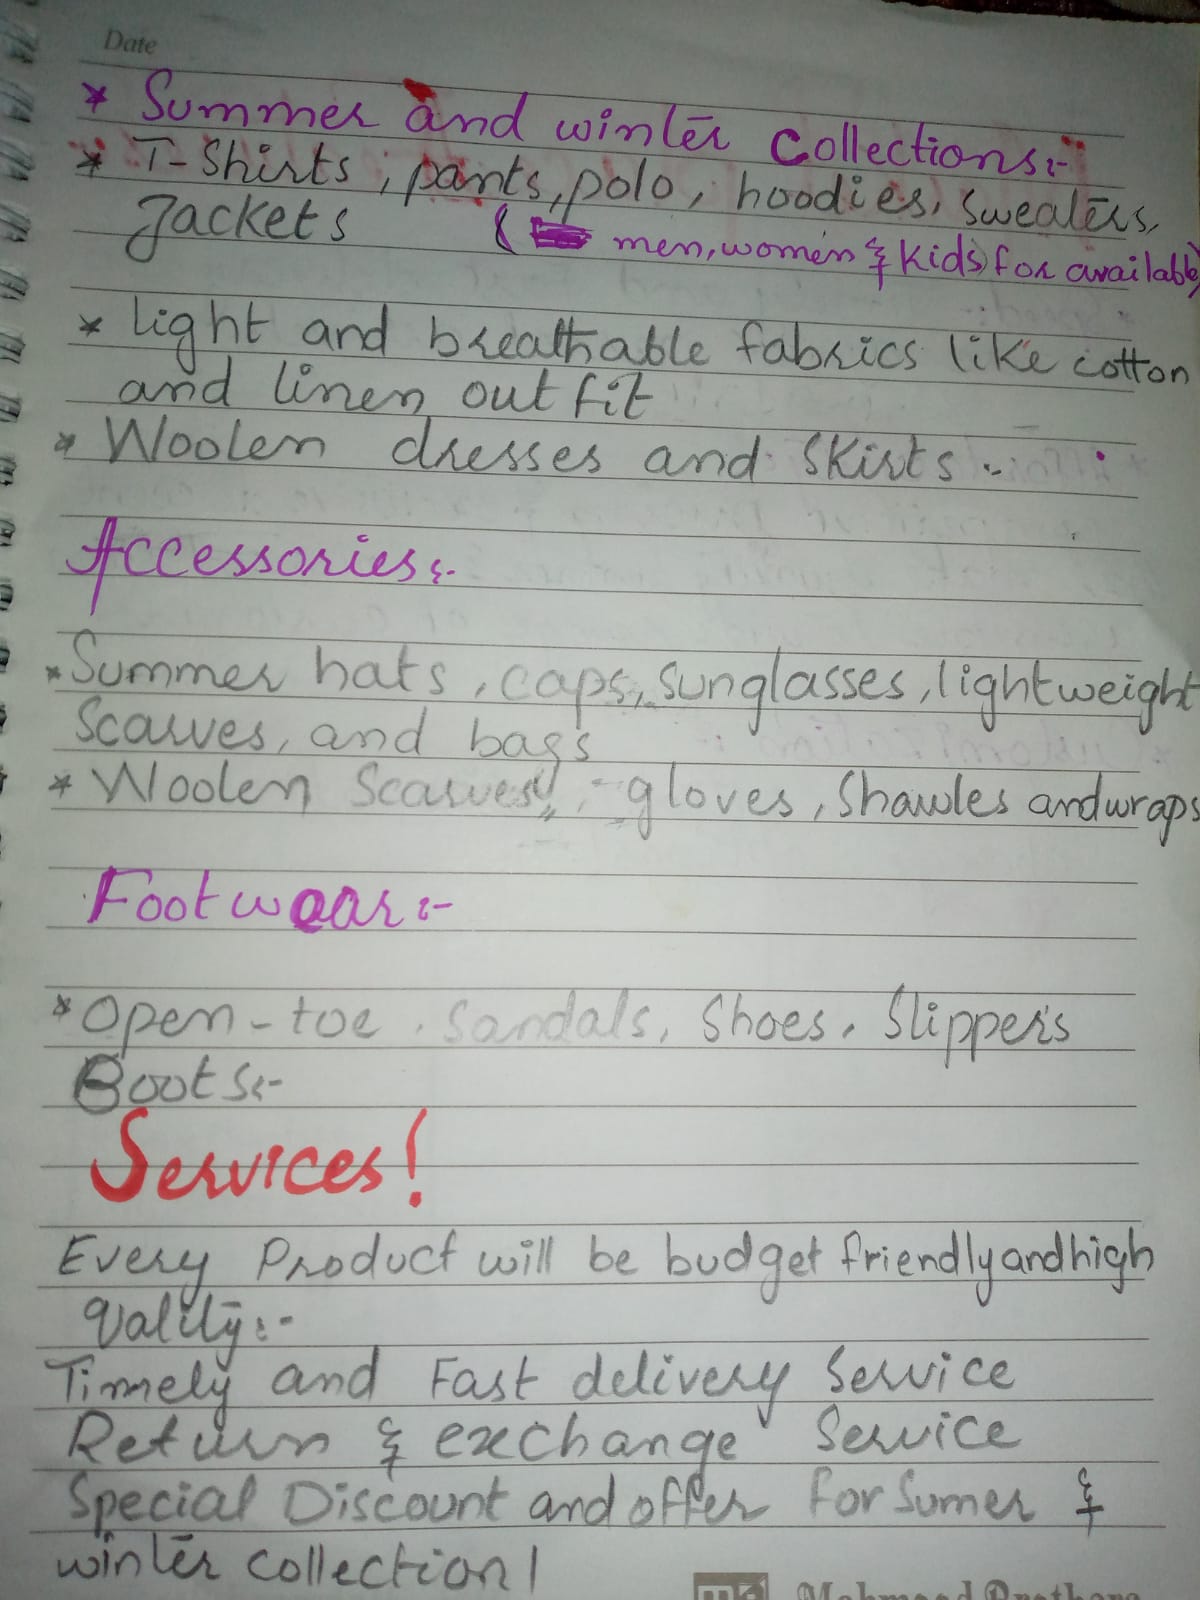 Date
* Summer and winter Collections:-
* T-Shirts, pants, polo, hoodies, Sweaters,
Jackets (men, women & Kids) for available)
* light and breathable fabrics like cotton
and linen outfit
* Woolen dresses and Skirts.
Accessories:-
* Summer hats, caps, sunglasses, lightweight
Scarves, and bags
* Woolen Scarves, gloves, Shawles and wraps
Footwear:-
* Open-toe, Sandals, Shoes, Slippers
Boots:-
Services!
Every Product will be budget friendly and high
quality:-
Timely and Fast delivery Service
Return & exchange Service
Special Discount and offer for Sumer &
winter collection!